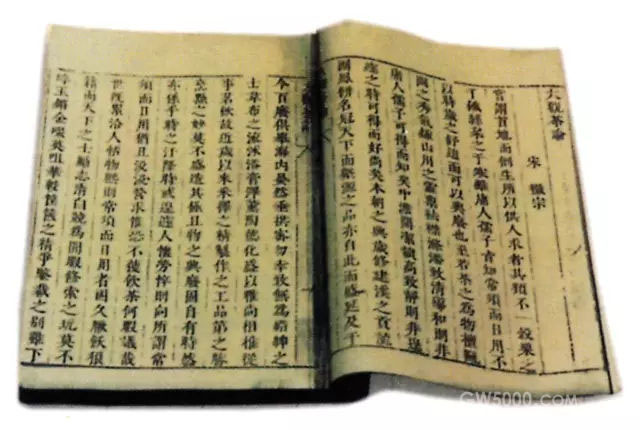 大觀茶論
宋 徽宗
嘗謂首地而倒生所以供人求者其類不一穀粟之
于饑絲枲之于寒雖庸人孺子皆知常須而日用不
以時歲之舒迫而可以興廢也至若茶之爲物擅甌
閩之秀氣鍾山川之靈稟祛襟滌滯致清導和則非
庸人孺子可得而知矣中澹閒潔韻高致靜則非遑
遽之時可得而好尚矣本朝之興歲修建溪之貢龍
團鳳餅名冠天下而壑源之品亦自此而盛延及于
今百廢俱舉海內晏然垂拱密勿幸致無爲縉紳之
士韋布之流沐浴膏澤薰陶德化盛以雅尚相推從
事茗飲故近歲以來采擇之精製作之工品第之勝
烹點之妙莫不盛造其極且物之興廢固自有時然
亦係乎時之汙隆時或遑遽人懷勞悴則向所謂常
須而日用猶且汲汲營求惟恐不獲飲茶何暇議哉
世既累洽人恬物熙則常須而日用者因久厭飫狼
籍而天下之士勵志清白競爲閒暇修索之玩莫不
碎玉鏘金啜英咀華較筐篋之精爭鑒裁之別雖下
GW5000.COM